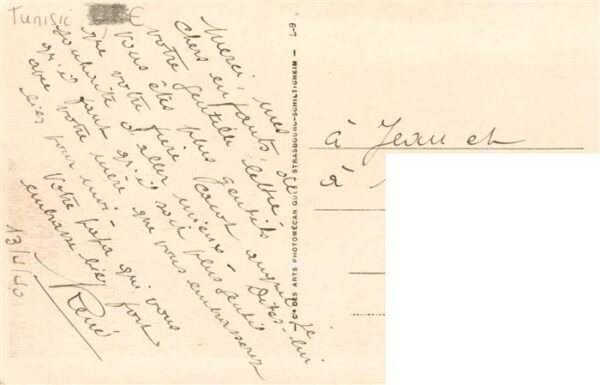 Tunisie €
Merci, mes
chers enfants, de
votre gentille lettre.
Vous êtes plus gentils
que votre frère Jacot auquel je
souhaite d'aller mieux. Dites-lui
qu'il faut qu'il soit plus gentil
avec votre mère que vous embrasserez
bien pour moi.
Votre papa qui vous
embrasse bien fort
René
13/4/40
Cie DES ARTS PHOTOMÉCANIQUES - STRASBOURG-SCHILTIGHEIM - 
à Jean et
à